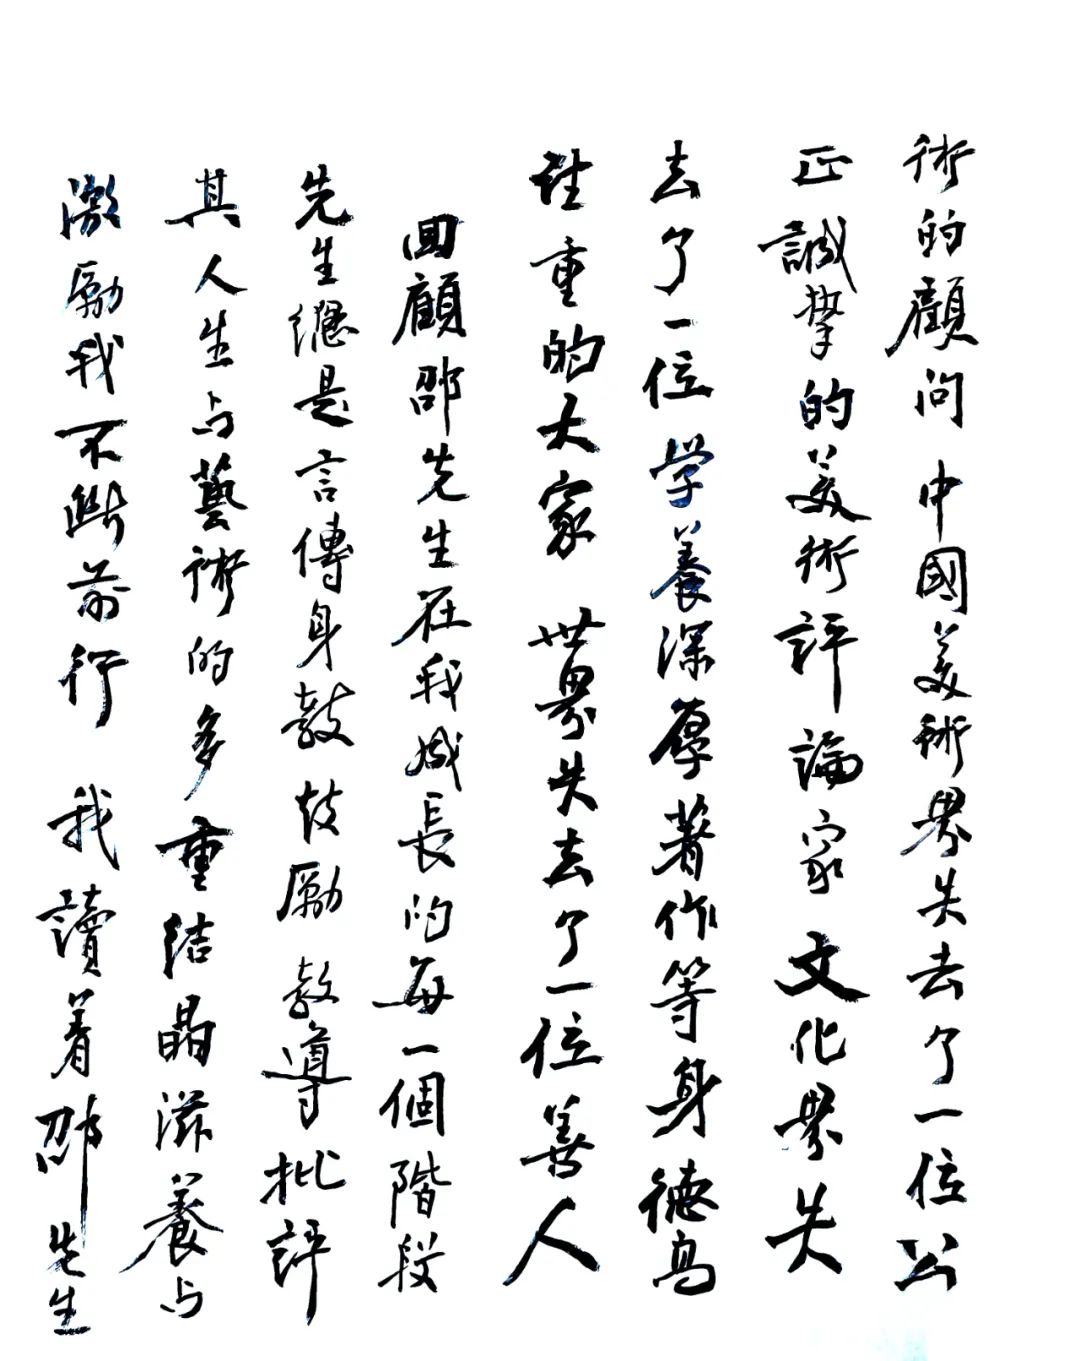 術的顧問中國美術界失去了一位公
正誠摯的美術評論家文化界失
去了一位学養深厚著作等身德高
注重的大家世界失去了一位善人
回顧邵先生在我成長的每一個階段
先生總是言傳身教鼓勵教導批評
其人生与藝術的多重结晶滋養与
激勵我不断前行我讀着邵先生